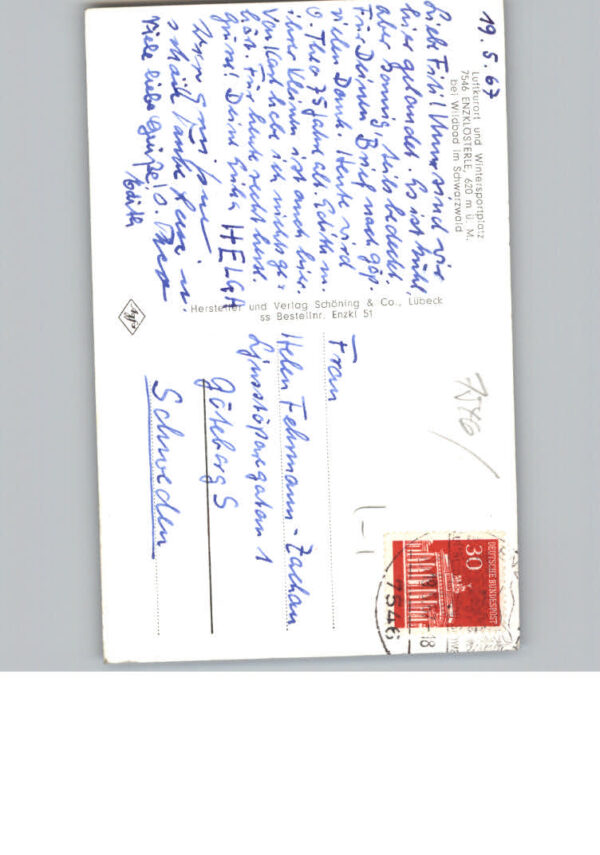 19. 5. 67
Luftkurort und Wintersportplatz
7546 ENZKLÖSTERLE, 620 m ü. M.
bei Wildbad im Schwarzwald
Liebe Fifi! Nun sind wir
hier gelandet. Es ist kühl,
aber sonnig, teils bedeckt.
Für Deinen Brief nach Göp.
vielen Dank. Heute wird
O. Theo 75 Jahre alt. Edith m.
ihrer Kleinen ist auch hier.
Von Karl habe ich nichts ge-
hört. Für heute recht herzl.
Grüsse! Deine Erika HELGA
Viele liebe Grüße! O. Theo
Edith
Hersteller und Verlag Schöning & Co., Lübeck
ss Bestellnr. Enzkl 51
Agfa
Frau
Helen Fehmann-Zachau
Ljusstöparegatan 1
Göteborg S
Schweden
7546
DEUTSCHE BUNDESPOST
30
7546
18